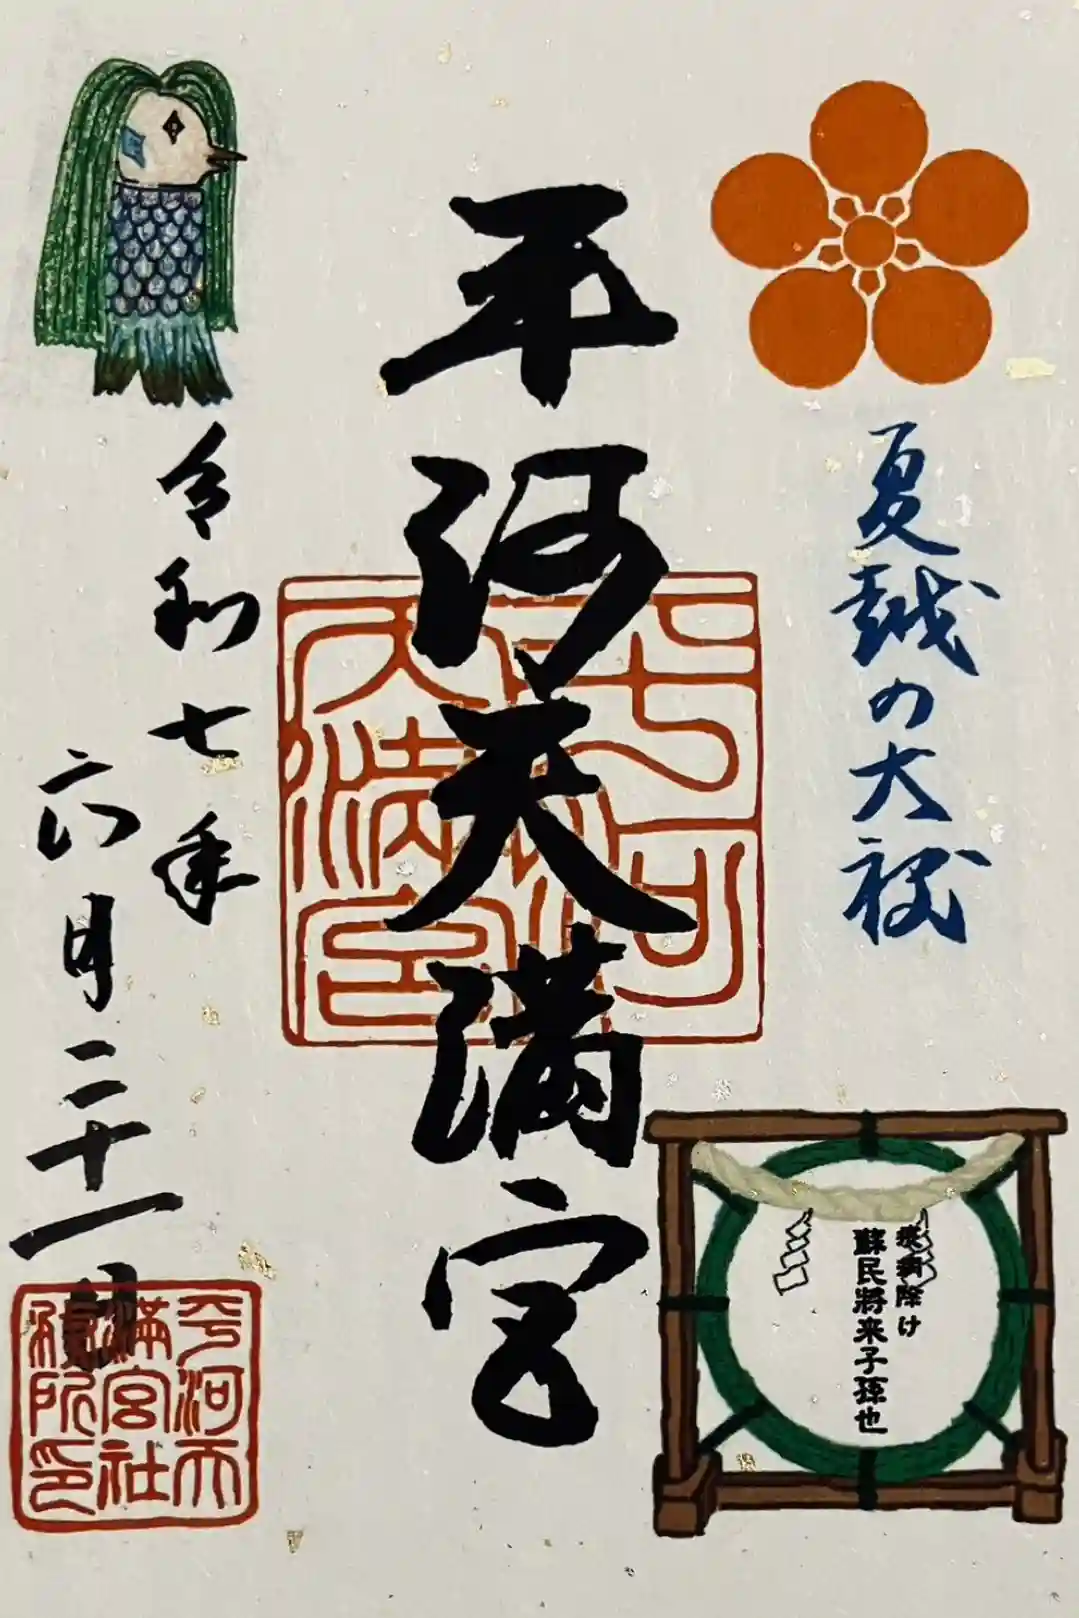 夏越の大祓
疫病除け
蘇民將来子孫也
平河天満宮
平河天満宮
令和七年
六月二十一日
平河天
満宮社
務所印